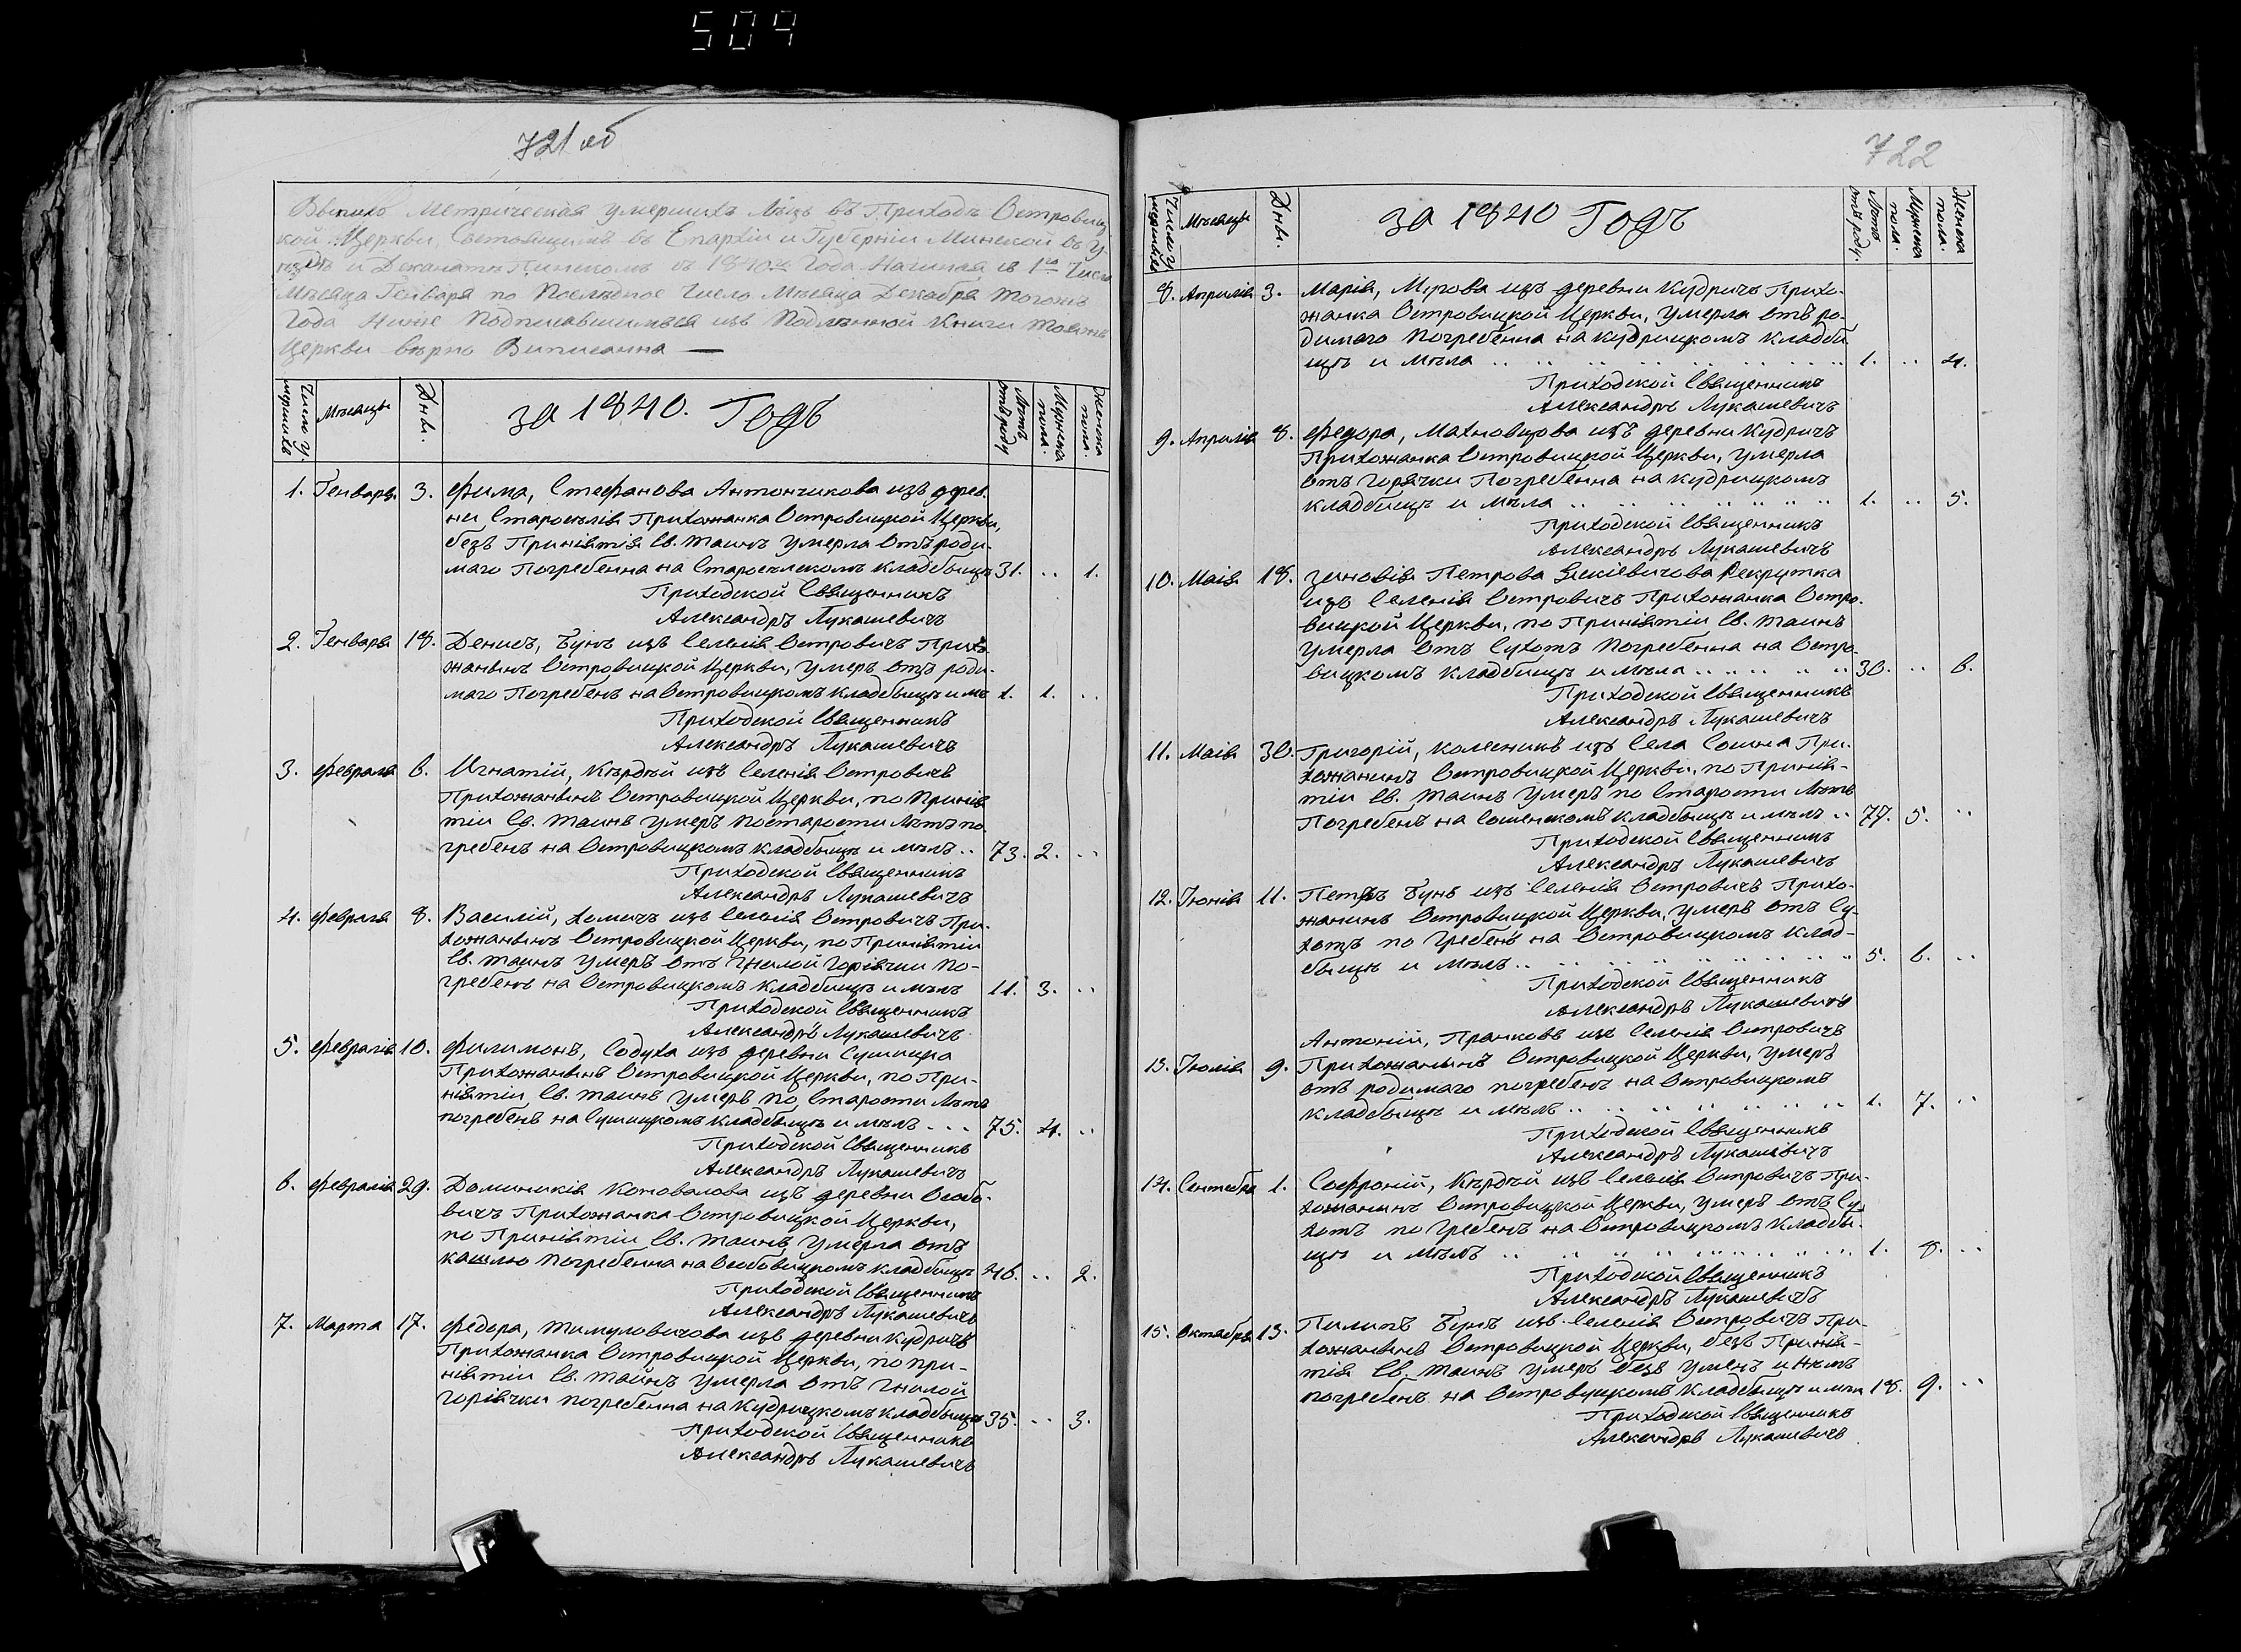 504
721 об
Выпись Метрическая умершихъ лицъ въ Приходѣ Островиц
кой Церкви, Состоящимъ въ Епархіи и Губерніи Минской въ У-
ѣздѣ и Деканатѣ Пинскомъ съ 1840го Года Начиная съ 1го Числа
Мѣсяца Генваря по Послѣдное Число Мѣсяца Декабря тогожъ
Года Ниже Подписавшимься изъ Подлѣнной Книги тояжъ
Церкви вѣрно Виписанна —
Число у-
мершихъ
Мѣсяцы
Дни.
за 1840. Годъ
Лѣта
отъ роду
Мужеска
пола.
Женска
пола.
1. Генваря 3. Фима, Стефанова Антончикова изъ дерев.
ни Староселія Прихожанка Островицкой Церкви,
безъ Принятія Св. Таинъ умерла отъ роди-
маго Погребенна на Староселскомъ кладбыщѣ 31. .. 1.
Приходской Священникъ
Александръ Лукашевичъ
2. Генваря 18. Денисъ, Бунъ изъ Селенія Островичъ Прихо
жанынъ Островицкой Церкви, умеръ отъ роди-
маго Погребенъ на Островицкомъ кладбыщѣ и мѣ 1. 1. ..
Приходской Священникъ
Александръ Лукашевичъ
3. Февраля 6. Игнатій, Кѣрдѣй изъ Селенія Островичъ
Прихожанынъ Островицкой Церкви, по Приня
тіи Св. Таинъ умеръ постарости лѣтъ по
гребенъ на Островицкомъ кладбыщѣ и мѣлъ .. 73. 2. ..
Приходской Священникъ
Александръ Лукашевичъ
4. Февраля 8. Василій, Хомичъ изъ Селенія Островичъ При-
хожанынъ Островицкой Церкви, по Принятіи
Св. Таинъ умеръ отъ гнилой горячки по-
гребенъ на Островицкомъ кладбищѣ и мѣлъ 11. 3. ..
Приходской Священникъ
Александръ Лукашевичъ
5. Февралія 10. Филимонъ, Содуха изъ деревни Сушицка
Прихожанынъ Островицкой Церкви, по При-
нятіи, Св. Таинъ умеръ по Старости лѣтъ
погребенъ на Сушицкомъ кладбыщѣ и мѣлъ ... 75. 4. ..
Приходской Священникъ
Александръ Лукашевичъ
6. Февралія 29. Доминикія Коновалова изъ деревни Особо-
вичъ Прихожанка Островицкой Церкви,
по Принятіи Св. Таинъ умерла отъ
кашлю Погребенна на Особовицкомъ кладбищѣ 46. .. 2.
Приходской Священникъ
Александръ Лукашевичъ
7. Марта 17. Федора, Тимуловичова изъ деревни Кудричъ
Прихожанка Островицкой Церкви, по при-
нятіи Св. Таинъ умерла отъ гнилой
горячки погребенна на Кудрицкомъ кладбыщѣ 35. .. 3.
Приходской Священникъ
Александръ Лукашевичъ
722
Число у
мершихъ
Мѣсяцы
Дни.
за 1840 Годъ
Лѣта
отъ роду.
Мужеска
пола.
Женска
пола.
8. Априлія 3. Марія, Мурова изъ деревни Кудричъ Прихо-
жанка Островицкой Церкви, умерла отъ ро-
димаго Погребенна на Кудрицкомъ кладби
щѣ и мѣла .. 1. .. 4.
Приходской Священникъ
Александръ Лукашевичъ
9. Априлія 8. Федора, Махновцова изъ деревни Кудричъ
Прихожанка Островицкой Церкви, умерла
отъ горячки Погребенна на Кудрицкомъ
кладбищѣ и мѣла .. 1. .. 5.
Приходской Священникъ
Александръ Лукашевичъ
10. Маія 18. Зиновія Петрова Рекрутка
изъ Селенія Островичъ Прихожанка Остро-
вицкой Церкви, по Принятіи Св. Таинъ
умерла отъ Сухотъ Погребенна на Остро-
вицкомъ кладбищѣ и мѣла .. 30. .. 6.
Приходской Священникъ
Александръ Лукашевичъ
11. Маія 30. Григорій, Колесникъ изъ Села Сошна При-
хожанинъ Островицкой Церкви, по Приня-
тіи Св. Таинъ умеръ по Старости лѣтъ
Погребенъ на Сошенскомъ кладбищѣ и мѣлъ .. 77. 5. ..
Приходской Священникъ
Александръ Лукашевичъ
12. Іюнія 11. Петръ Бунъ изъ Селенія Островичъ Прихо-
жанинъ Островицкой Церкви, умеръ отъ Су-
хотъ по гребенъ на Островицкомъ клад-
быщѣ и мѣлъ .. 5. 6. ..
Приходской Священникъ
Александръ Лукашевичъ
Антоній, Пранковъ изъ Селенія Островичъ
13. Іюлія 9. Прихожанынъ Островицкой Церкви, умеръ
отъ родимаго погребенъ на Островицкомъ
кладбыщѣ и мѣлъ .. 1. 7. ..
Приходской Священникъ
Александръ Лукашевичъ
14. Сентебра 1. Софроній, Кѣрдѣй изъ Селенія Островичъ При-
хожанинъ Островицкой Церкви, умеръ отъ Су
хотъ по гребенъ на Островицкомъ кладбы-
щѣ и мѣлъ .. 1. 8. ..
Приходской Священникъ
Александръ Лукашевичъ
15. Октабря 13. Пилипъ Бунъ изъ Селенія Островичъ При-
хожанынъ Островицкой Церкви, безъ Приня-
тія Св. Таинъ умеръ безъ
погребенъ на Островицкомъ кладбыщѣ и мѣл 18. 9. ..
Приходской Священникъ
Александръ Лукашевичъ